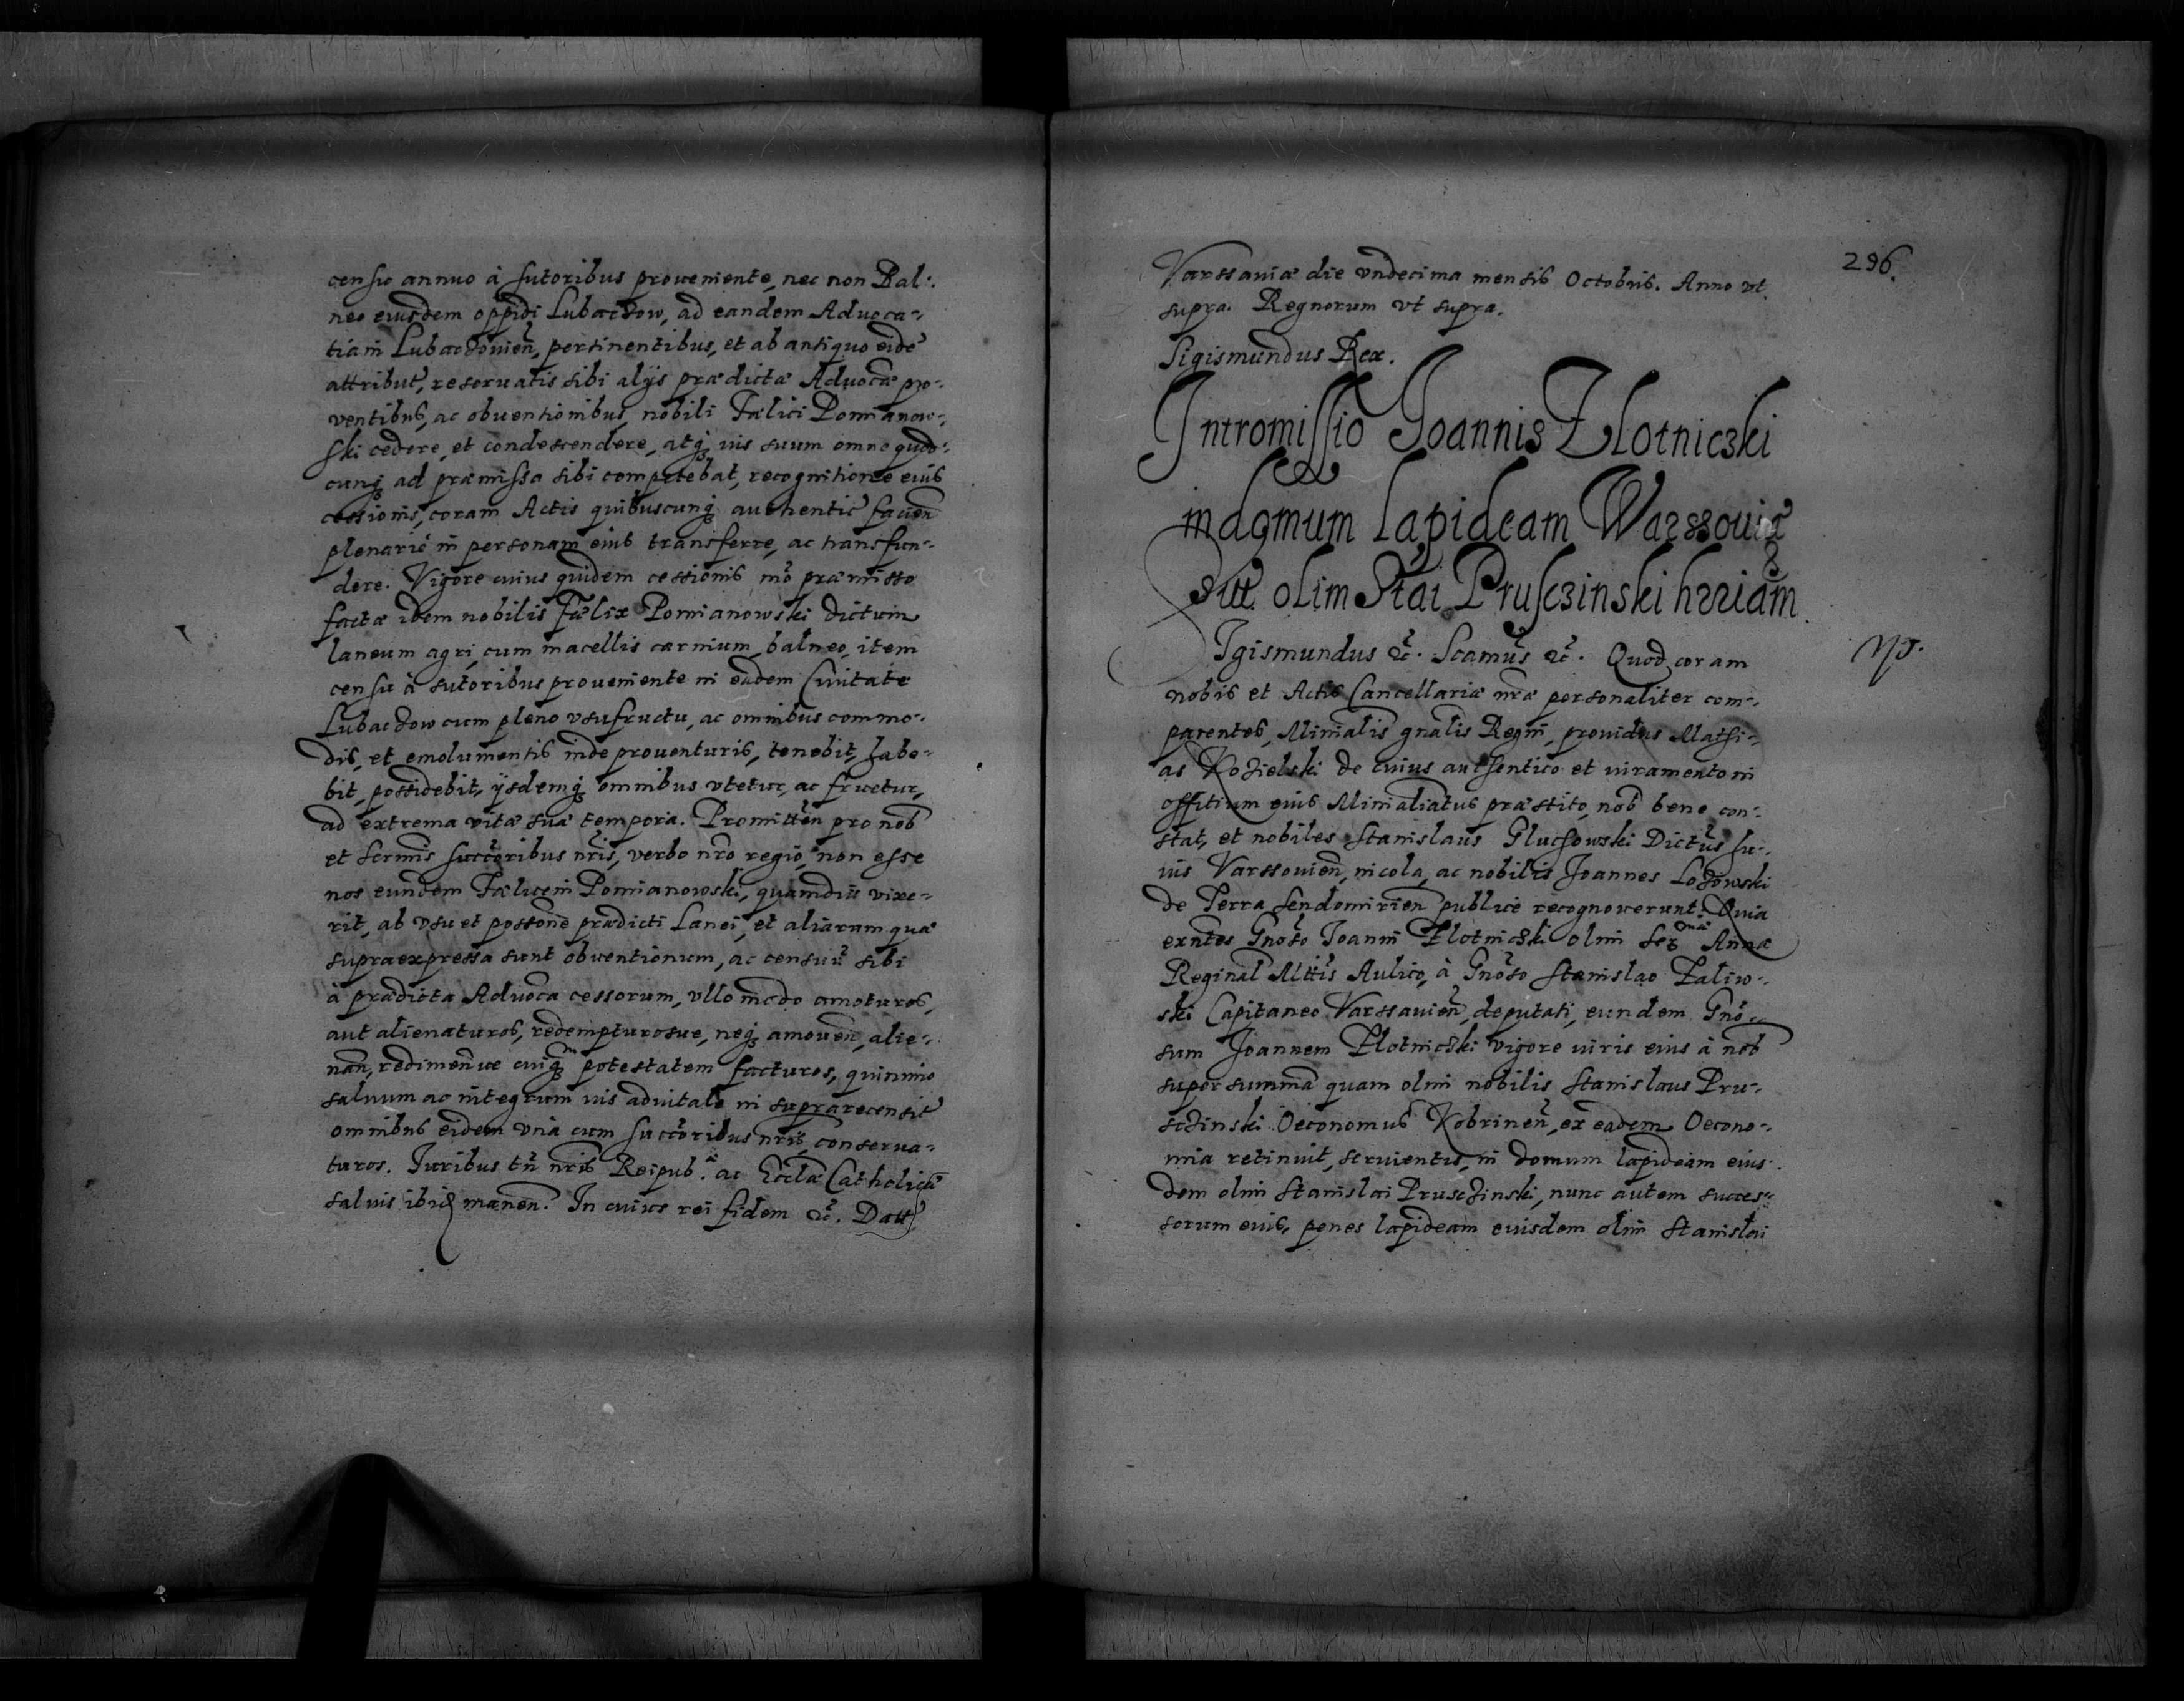 censu annuo à sutoribus proveniente, nec non Bal:
neo eiusdem oppidi Lubaczow, ad eandem Advoca-
tiam Lubaczovien̄, pertinentibus, et ab antiquo eidē
attribut̄, reservatis sibi alijs prædictæ Advocãe pro-
ventibus, ac obventionibus, nobili Fælici Pomianow-
ski cedere, et condescendere, atq₃ ius suum omne quod-
cunq₃ ad præmissa sibi competebat, recognitione eius
cessionis, coram Actis quibuscunq₃ authentic̄ facien̄
plenariè in personam eius transferre, ac transfun-
dere. Vigore cuius quidem cessionis mõ præmisso
factæ idem nobilis Fælix Pomianowski dictum
laneum agri, cum macellis carnium, balneo, item
censu à sutoribus proveniente in eadem Civitate
Lubaczow cum pleno usufructu, ac omnibus commo-
dis, et emolumentis inde proventuris, tenebit, habe-
bit, possidebit, ijsdemq₃ omnibus utetur, ac fruetur,
ad extrema vitæ suæ tempora. Promitten̄ pro nob̄
et Sermis̄ succ̄oribus nr̄is, verbo nr̄o regio, non esse
nos eundem Fælicem Pomianowski, quamdiu vixe-
rit, ab usu et poss̄one prædicti Lanei, et aliarum quæ
supraexpressa sunt obventionum, ac censuū sibi
à prædicta Advoc̄a cessorum, ullo modo amoturos,
aut alienaturos, redempturosve, neq₃ amoven̄, alie-
nan̄, redimen̄ve cuiq₃m potestatem facturos, quinimo
salvum ac integrum ius advitale in suprarecensit̄
omnibus eidem unà cum succ̄oribus nr̄is, conserva-
turos. Iuribus tn̄ nr̄is Reipub.æ ac Eccl̄æ Catholicæ
salvis ibiq₃ manen̄. In cuius rei fidem &c̄. Datt̄
296.
Varssaviæ die undecima mensis Octobris. Anno ut
supra. Regnorum ut supra.
Sigismundus Rex.
Intromissio Joannis Zlotniczki
in domum lapideam Warssoviæ
sitt̄. olim Stai Prusczinski hr̄riam.
Igismundus &c̄. Scamus̄ &c̄. Quod coram
nobis et Actis Cancellariæ nr̄æ personaliter com-
parentes, Minialis̄ gnalis̄ Regni, providus Mathi-
as Kozielski de cuius authentico et iuramento in
offitium eius Minialiatus̄ præstito, nob̄ bene con-
stat, et nobiles Stanislaus Gluchowski Dictus̄ Su-
ius Varssovien̄, incola, ac nobilis Joannes Lozowski
de Terra Sendomirien̄ publicè recognoverunt. Quia
exn̄tes Gnōso Joanni Zlotniczki olim Ser̄ᵐᵃᵉ Annæ
Reginal̄ Mttis̄ Aulico, à Gnōso Stanislao Zaliw-
ski Capitaneo Varssavien̄, deputati, eundem Gnō-
sum Joannem Zlotniczki vigore iuris eius à nob̄
super summā quam olim nobilis Stanislaus Pru-
sczinski Oeconomus Kobrinen̄, ex eadem Oecono-
mia retinuit, servientis, in domum lapideam eius-
dem olim Stanislai Prusczinski, nunc autem succes-
sorum eius, penes lapideam eiusdem olim Stanislai